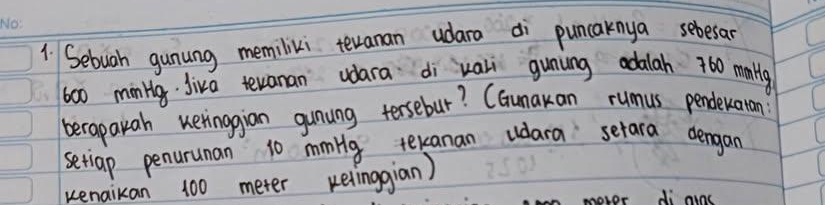 No:
1. Sebuah gunung memiliki tekanan udara di puncaknya sebesar
600 mmHg. Jika tekanan udara di kaki gunung adalah 760 mmHg,
berapakah ketinggian gunung tersebut? (Gunakan rumus pendekatan:
Setiap penurunan 10 mmHg tekanan udara setara dengan
kenaikan 100 meter ketinggian)
meter di atas